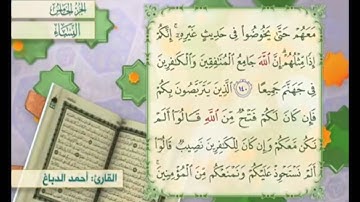 الجزء الخامس
النساء
مَعَهُمْ حَتَّىٰ يَخُوضُوا۟ فِى حَدِيثٍ غَيْرِهِۦٓ ۚ إِنَّكُمْ
إِذًا مِّثْلُهُمْ ۗ إِنَّ ٱللَّهَ جَامِعُ ٱلْمُنَٰفِقِينَ وَٱلْكَٰفِرِينَ
فِى جَهَنَّمَ جَمِيعًا ١٤٠ ٱلَّذِينَ يَتَرَبَّصُونَ بِكُمْ
فَإِن كَانَ لَكُمْ فَتْحٌ مِّنَ ٱللَّهِ قَالُوٓا۟ أَلَمْ
نَكُن مَّعَكُمْ وَإِن كَانَ لِلْكَٰفِرِينَ نَصِيبٌ قَالُوٓا۟
أَلَمْ نَسْتَحْوِذْ عَلَيْكُمْ وَنَمْنَعْكُم مِّنَ ٱلْمُؤْمِنِينَ ۚ
القارئ: أحمد الدباغ